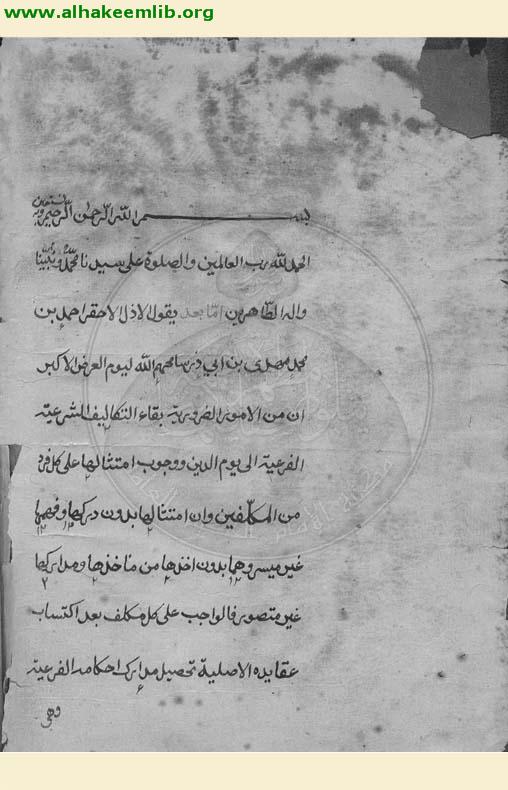 www.alhakeemlib.org
بسم الله الرحمن الرحيم وبه نستعين
الحمد لله رب العالمين والصلوة على سيدنا محمد ونبينا
واله الطاهرين اما بعد يقول الاذل الاحقر احمد بن
محمد مهدى بن ابي ذر سامحهم الله ليوم العرض الاكبر
ان من الامور الضرورية بقاء التكاليف الشرعية
الفرعية الى يوم الدين ووجوب امتثالها على كل فرد
من المكلفين وان امتثالها بدون دركها وفهمها
غير ميسر وهما بدون اخذها من مأخذها ومداركها
غير متصور فالواجب على كل مكلف بعد اكتساب
عقايده الاصلية تحصيل مدارك احكامه الفرعية
وهى